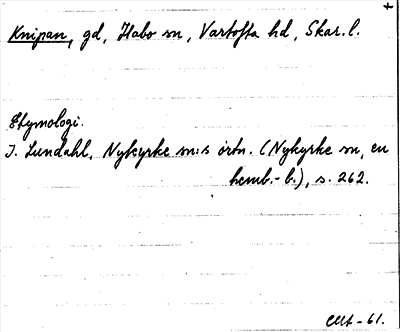 Knipan, gd, Habo sn, Vartofta hd, Skar. l.
Etymologi.
I. Lundahl, Nykyrke sn:s ortn. (Nykyrke sn, en
hemb.-b.), s. 262.
-61.